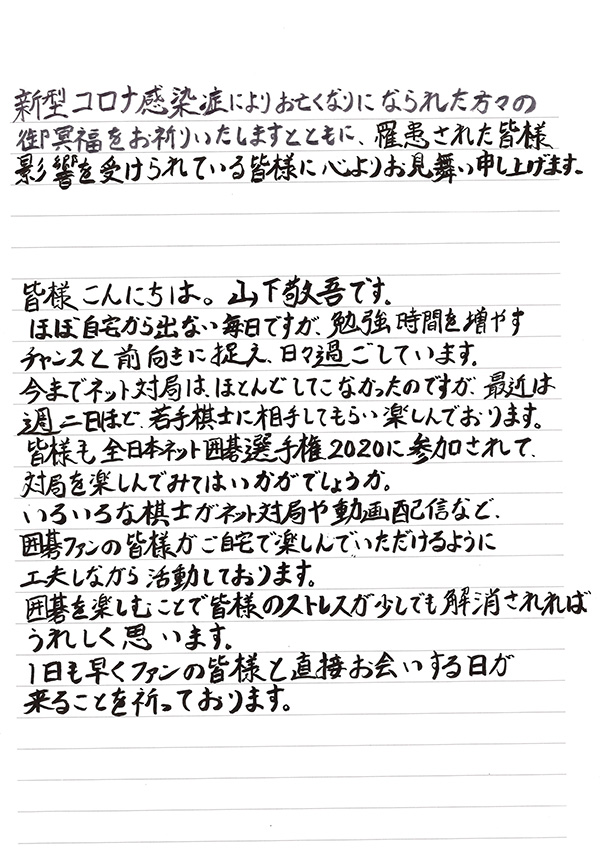 新型コロナ感染症によりお亡くなりになられた方々の
御冥福をお祈りいたしますとともに、罹患された皆様
影響を受けられている皆様に心よりお見舞い申し上げます。
皆様こんにちは。山下敬吾です。
ほぼ自宅から出ない毎日ですが、勉強時間を増やす
チャンスと前向きに捉え、日々過ごしています。
今までネット対局は、ほとんどしてこなかったのですが、最近は
週二日ほど、若手棋士に相手してもらい楽しんでおります。
皆様も全日本ネット囲碁選手権2020に参加されて、
対局を楽しんでみてはいかがでしょうか。
いろいろな棋士がネット対局や動画配信など、
囲碁ファンの皆様がご自宅で楽しんでいただけるように
工夫しながら活動しております。
囲碁を楽しむことで皆様のストレスが少しでも解消されれば
うれしく思います。
1日も早くファンの皆様と直接お会いする日が
来ることを祈っております。